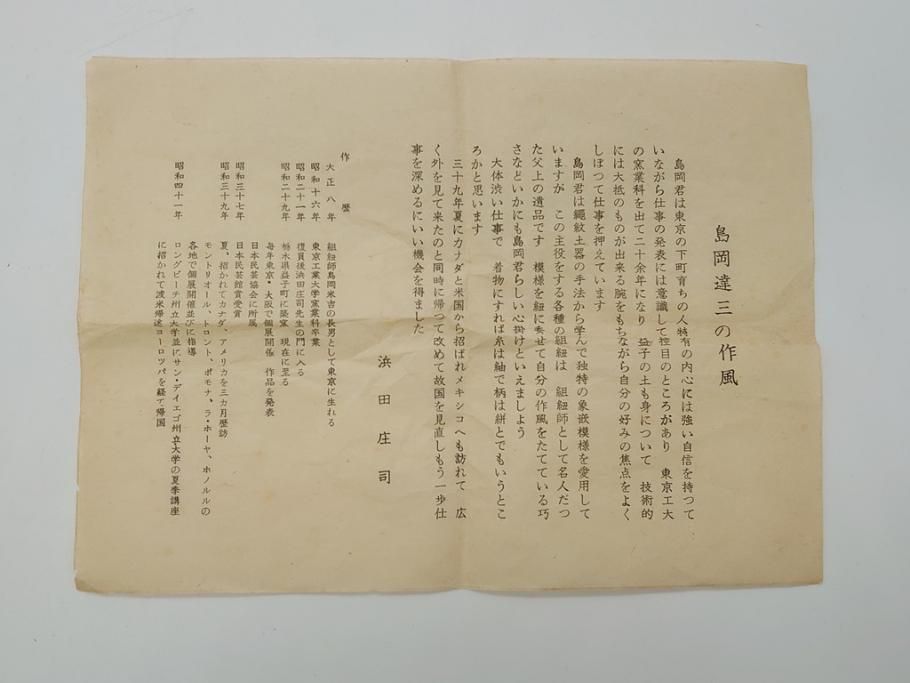 島岡達三の作風
島岡君は東京の下町育ちの人特有の内心には強い自信を持つて
いながら仕事の発表には意識して控目のところがあり 東京工大
の窯業科を出て二十余年になり 益子の土も身について 技術的
には大抵のものが出来る腕をもちながら自分の好みの焦点をよく
しぼつて仕事を押えています
島岡君は縄紋土器の手法から学んで独特の象嵌模様を愛用して
いますが この主役をする各種の組紐は 組紐師として名人だつ
た父上の遺品です 模様を紐に委せて自分の作風をたてている巧
さなどいかにも島岡君らしい心掛けといえましよう
大体渋い仕事で 着物にすれば糸は紬で柄は絣とでもいうとこ
ろかと思います
三十九年夏にカナダと米国から招ばれメキシコへも訪れて 広
く外を見て来たのと同時に帰つて改めて故国を見直しもう一歩仕
事を深めるにいい機会を得ました
浜田庄司
作歴
大正八年 組紐師島岡米吉の長男として東京に生れる
昭和十六年 東京工業大学窯業科卒業
昭和二十一年 復員後浜田庄司先生の門に入る
昭和二十九年 栃木県益子町に築窯 現在に至る
毎年東京・大阪で個展開催 作品を発表
日本民芸協会に所属
昭和三十七年 日本民芸館賞受賞
昭和三十九年 夏、招かれてカナダ、アメリカを三カ月歴訪
モントリオール、トロント、ポモナ、ラ・ホーヤ、ホノルルの
各地で個展開催並びに指導
昭和四十一年 ロングビーチ州立大学並にサン・デイエゴ州立大学の夏季講座
に招かれて渡米帰途ヨーロツパを経て帰国